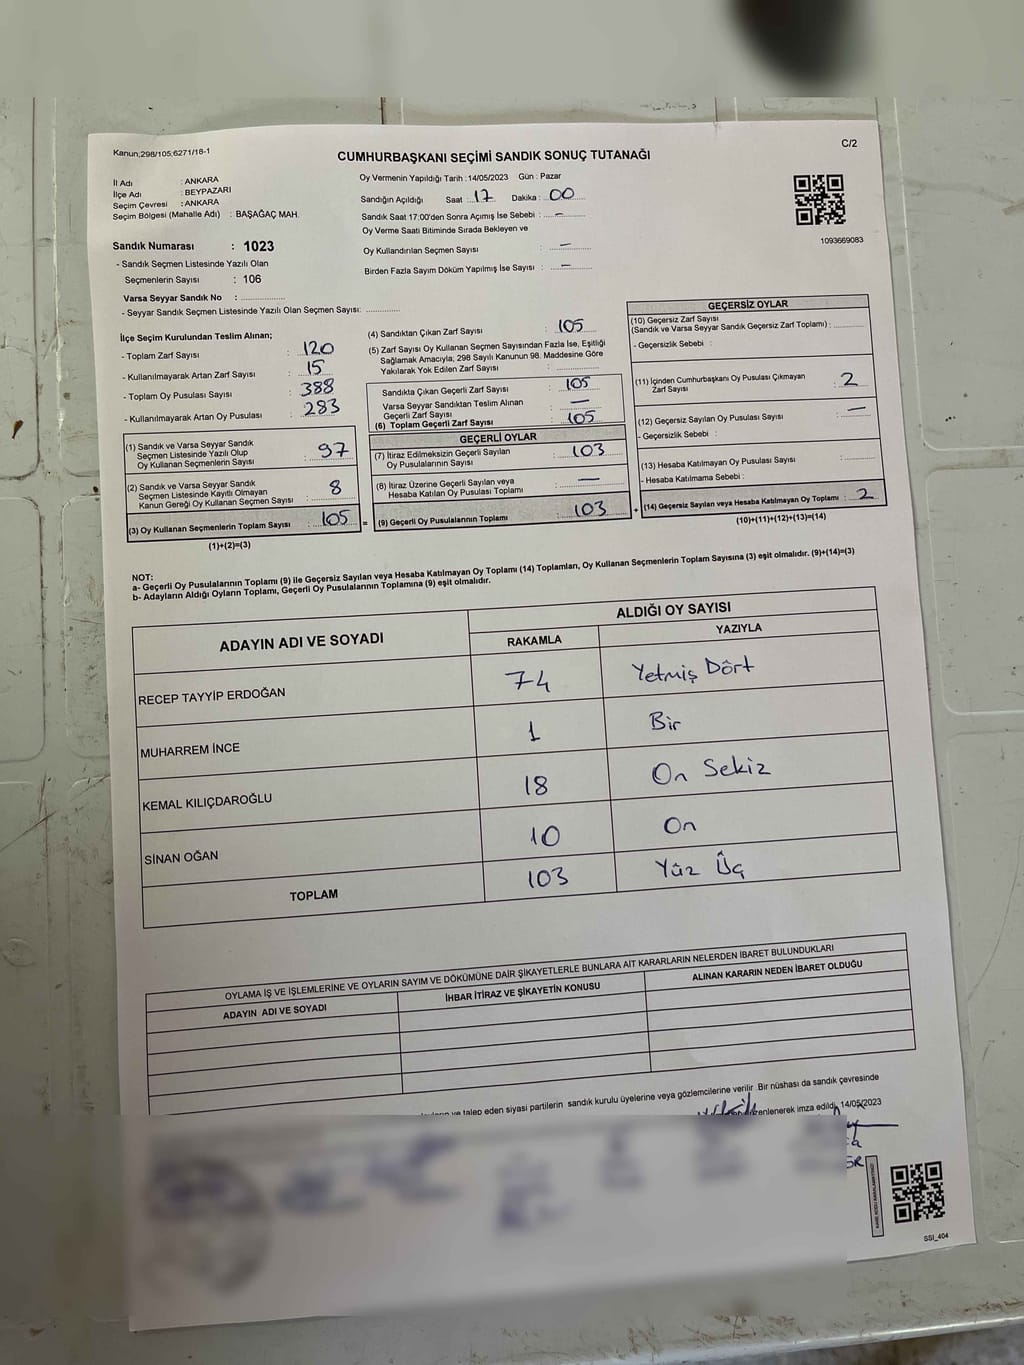 Kanun,298/105,6271/18-1
C/2
CUMHURBAŞKANI SEÇİMİ SANDIK SONUÇ TUTANAĞI
İl Adı : ANKARA
İlçe Adı : BEYPAZARI
Seçim Çevresi : ANKARA
Seçim Bölgesi (Mahalle Adı) : BAŞAĞAÇ MAH.
Sandık Numarası : 1023
- Sandık Seçmen Listesinde Yazılı Olan
Seçmenlerin Sayısı : 106
Varsa Seyyar Sandık No : ..............
- Seyyar Sandık Seçmen Listesinde Yazılı Olan Seçmen Sayısı: ..............
Oy Vermenin Yapıldığı Tarih :14/05/2023 Gün : Pazar
Sandığın Açıldığı Saat : 17 Dakika : 00
Sandık Saat 17:00'den Sonra Açımış İse Sebebi : –
Oy Verme Saati Bitiminde Sırada Bekleyen ve
Oy Kullandırılan Seçmen Sayısı : –
Birden Fazla Sayım Döküm Yapılmış İse Sayısı : –
1093669083
İlçe Seçim Kurulundan Teslim Alınan;
- Toplam Zarf Sayısı : 120
- Kullanılmayarak Artan Zarf Sayısı : 15
- Toplam Oy Pusulası Sayısı : 388
- Kullanılmayarak Artan Oy Pusulası : 283
(1) Sandık ve Varsa Seyyar Sandık
Seçmen Listesinde Yazılı Olup
Oy Kullanan Seçmenlerin Sayısı : 97
(2) Sandık ve Varsa Seyyar Sandık
Seçmen Listesinde Kayıtlı Olmayan
Kanun Gereği Oy Kullanan Seçmen Sayısı : 8
(3) Oy Kullanan Seçmenlerin Toplam Sayısı : 105 =
(1)+(2)=(3)
(4) Sandıktan Çıkan Zarf Sayısı : 105
(5) Zarf Sayısı Oy Kullanan Seçmen Sayısından Fazla İse, Eşitliği
Sağlamak Amacıyla; 298 Sayılı Kanunun 98. Maddesine Göre
Yakılarak Yok Edilen Zarf Sayısı : ..............
Sandıkta Çıkan Geçerli Zarf Sayısı : 105
Varsa Seyyar Sandıktan Teslim Alınan
Geçerli Zarf Sayısı : –
(6) Toplam Geçerli Zarf Sayısı : 105
GEÇERLİ OYLAR
(7) İtiraz Edilmeksizin Geçerli Sayılan
Oy Pusulalarının Sayısı : 103
(8) İtiraz Üzerine Geçerli Sayılan veya
Hesaba Katılan Oy Pusulası Toplamı : –
(9) Geçerli Oy Pusulalarının Toplamı : 103 +
GEÇERSİZ OYLAR
(10) Geçersiz Zarf Sayısı
(Sandık ve Varsa Seyyar Sandık Geçersiz Zarf Toplamı) : ..............
- Geçersizlik Sebebi :
(11) İçinden Cumhurbaşkanı Oy Pusulası Çıkmayan
Zarf Sayısı : 2
(12) Geçersiz Sayılan Oy Pusulası Sayısı : –
- Geçersizlik Sebebi :
(13) Hesaba Katılmayan Oy Pusulası Sayısı : ..............
- Hesaba Katılmama Sebebi :
(14) Geçersiz Sayılan veya Hesaba Katılmayan Oy Toplamı : 2
(10)+(11)+(12)+(13)=(14)
NOT:
a- Geçerli Oy Pusulalarının Toplamı (9) ile Geçersiz Sayılan veya Hesaba Katılmayan Oy Toplamı (14) Toplamları, Oy Kullanan Seçmenlerin Toplam Sayısına (3) eşit olmalıdır. (9)+(14)=(3)
b- Adayların Aldığı Oyların Toplamı, Geçerli Oy Pusulalarının Toplamına (9) eşit olmalıdır.
ADAYIN ADI VE SOYADI ALDIĞI OY SAYISI
RAKAMLA YAZIYLA
RECEP TAYYİP ERDOĞAN 74 Yetmiş Dört
MUHARREM İNCE 1 Bir
KEMAL KILIÇDAROĞLU 18 On Sekiz
SİNAN OĞAN 10 On
TOPLAM 103 Yüz Üç
OYLAMA İŞ VE İŞLEMLERİNE VE OYLARIN SAYIM VE DÖKÜMÜNE DAİR ŞİKAYETLERLE BUNLARA AİT KARARLARIN NELERDEN İBARET BULUNDUKLARI
ADAYIN ADI VE SOYADI İHBAR İTİRAZ VE ŞİKAYETİN KONUSU ALINAN KARARIN NEDEN İBARET OLDUĞU
ve talep eden siyasi partilerin sandık kurulu üyelerine veya gözlemcilerine verilir. Bir nüshası da sandık çevresinde
imza edildi. 14/05/2023
SSI_404